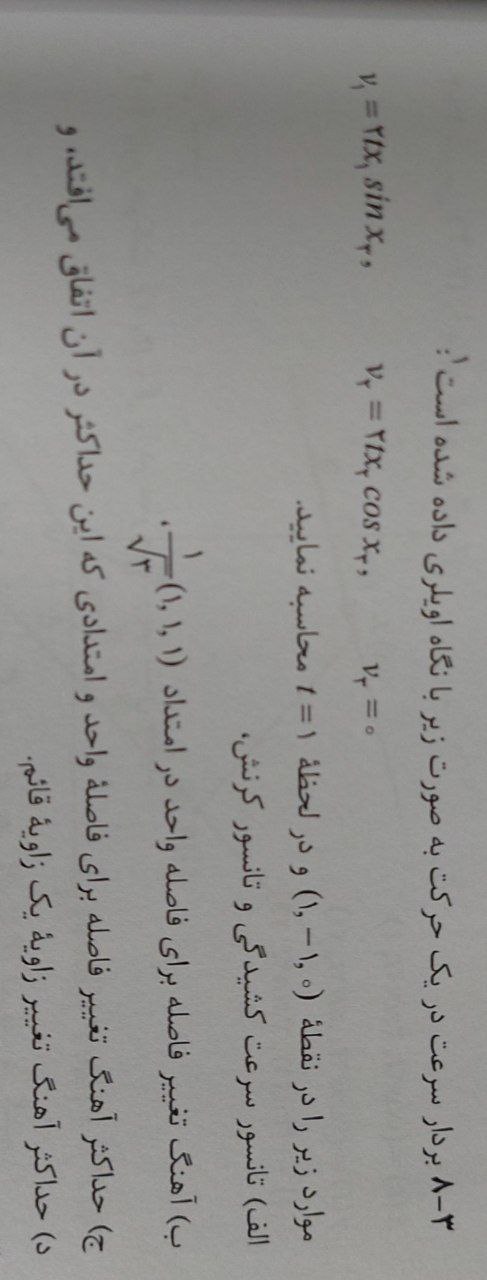 ۳-۸ بردار سرعت در یک حرکت به صورت زیر با نگاه اویلری داده شده است۱:
v₁ = ۲tx₁ sin x₃, v₂ = ۲tx₂ cos x₃, v₃ = ۰
موارد زیر را در نقطۀ (۱, -۱, ۰) و در لحظۀ t = ۱ محاسبه نمایید.
الف) تانسور سرعت کشیدگی و تانسور کرنش.
ب) آهنگ تغییر فاصله برای فاصله واحد در امتداد (۱, ۱, ۱) ۱/√۳.
ج) حداکثر آهنگ تغییر فاصله برای فاصلۀ واحد و امتدادی که این حداکثر در آن اتفاق می‌افتد، و
د) حداکثر آهنگ تغییر زاویۀ یک زاویۀ قائم.